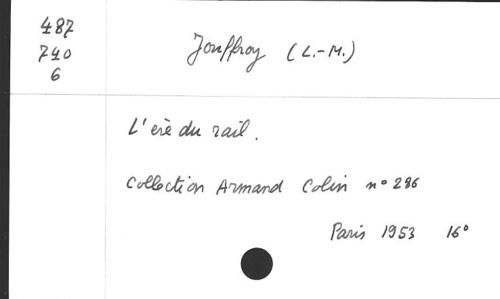 487
740
6
Jouffroy (L.-M.)
L'ère du rail.
Collection Armand Colin n° 286
Paris 1953 16°